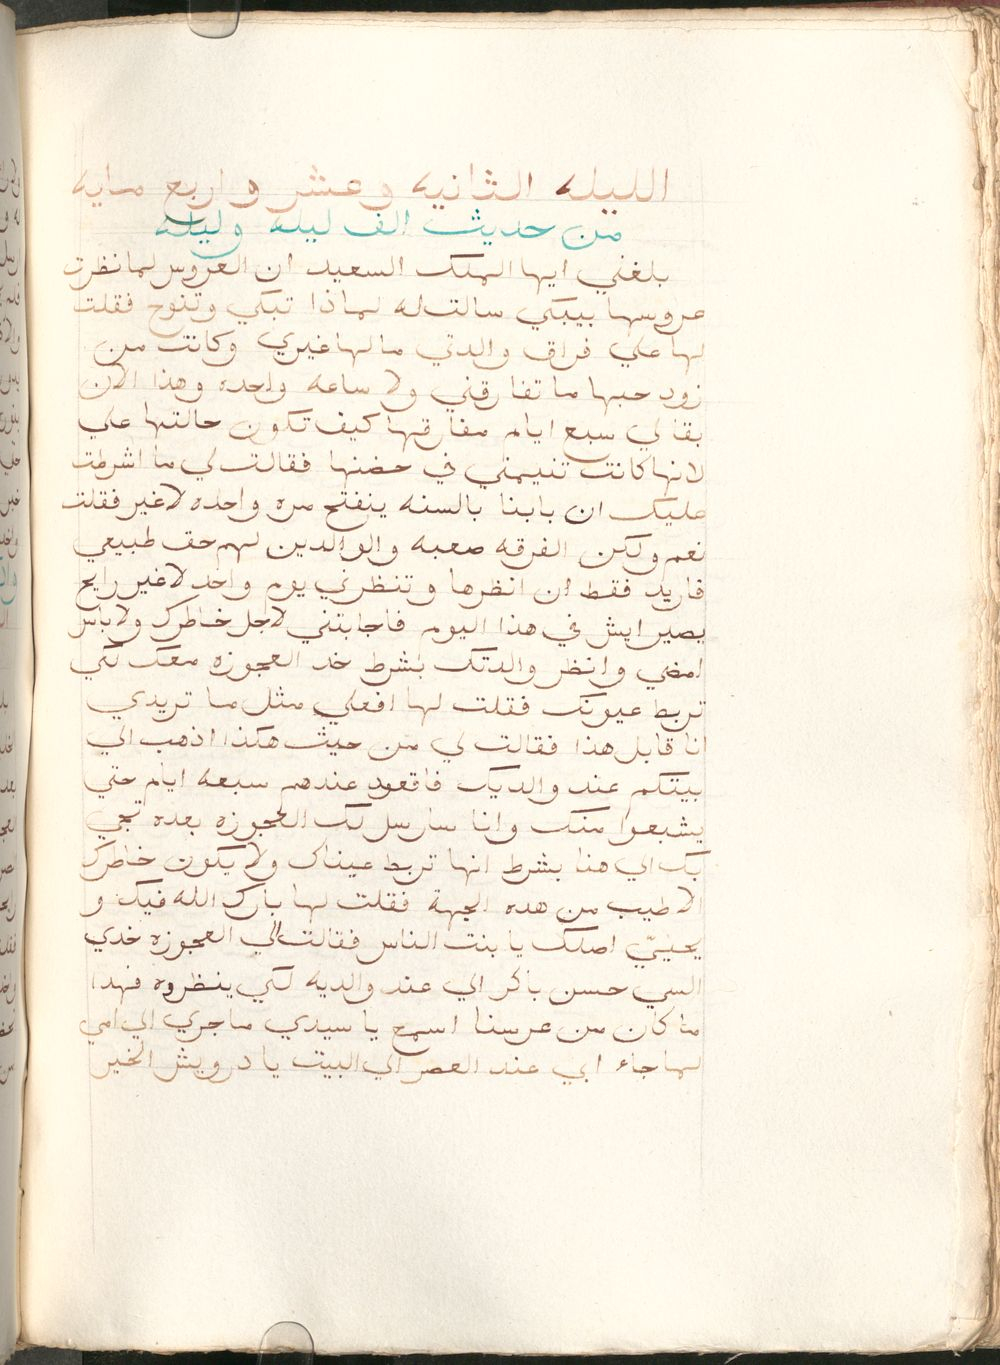 الليله الثانيه وعشر واربع مايه
من حديث الف ليله وليله
بلغني ايها الملك السعيد ان العروس لما نظرت
عروسها بيبكي سالت له لماذا تبكي وتنوح فقلت
لها علي فراق والدتي ما لها غيري وكانت من
زود حبها ما تفارقني ولا ساعه واحده وهذا الان
بقا لي سبع ايام مفارقها كيف تكون حالتها علي
لانها كانت تنيمني في حضنها فقالت لي ما اشرطت
عليك ان بابنا بالسنه ينفتح مره واحده لا غير فقلت
نعم ولكن الفرقه صعبه والوالدين لهم حق طبيعي
فاريد فقط ان انظرها وتنظرني يوم واحد لا غير رايح
يصير ايش في هذا اليوم فاجابتني لاجل خاطرك ولا باس
امضي وانظر والدتك بشرط خد العجوزه معك لكي
تربط عيونك فقلت لها افعلي مثل ما تريدي
انا قابل هذا فقالت لي من حيث هكذا اذهب الي
بيتكم عند والديك فاقعود عندهم سبعه ايام حتي
يشبعوا منك وانا سارسل لك العجوزه بعده تجي
بك الي هنا بشرط انها تربط عيناك ولا يكون خاطرك
الا طيب من هده الجهة فقلت لها بارك الله فيك و
يحيّي اصلك يا بنت الناس فقالت الي العجوزه خدي
السي حسن باكر الي عند والديه لكي ينظروه فهدا
ما كان من عرسنا اسمع يا سيدي ما جري الي امي
لما جاء ابي عند العصر الي البيت يا درويش الخير